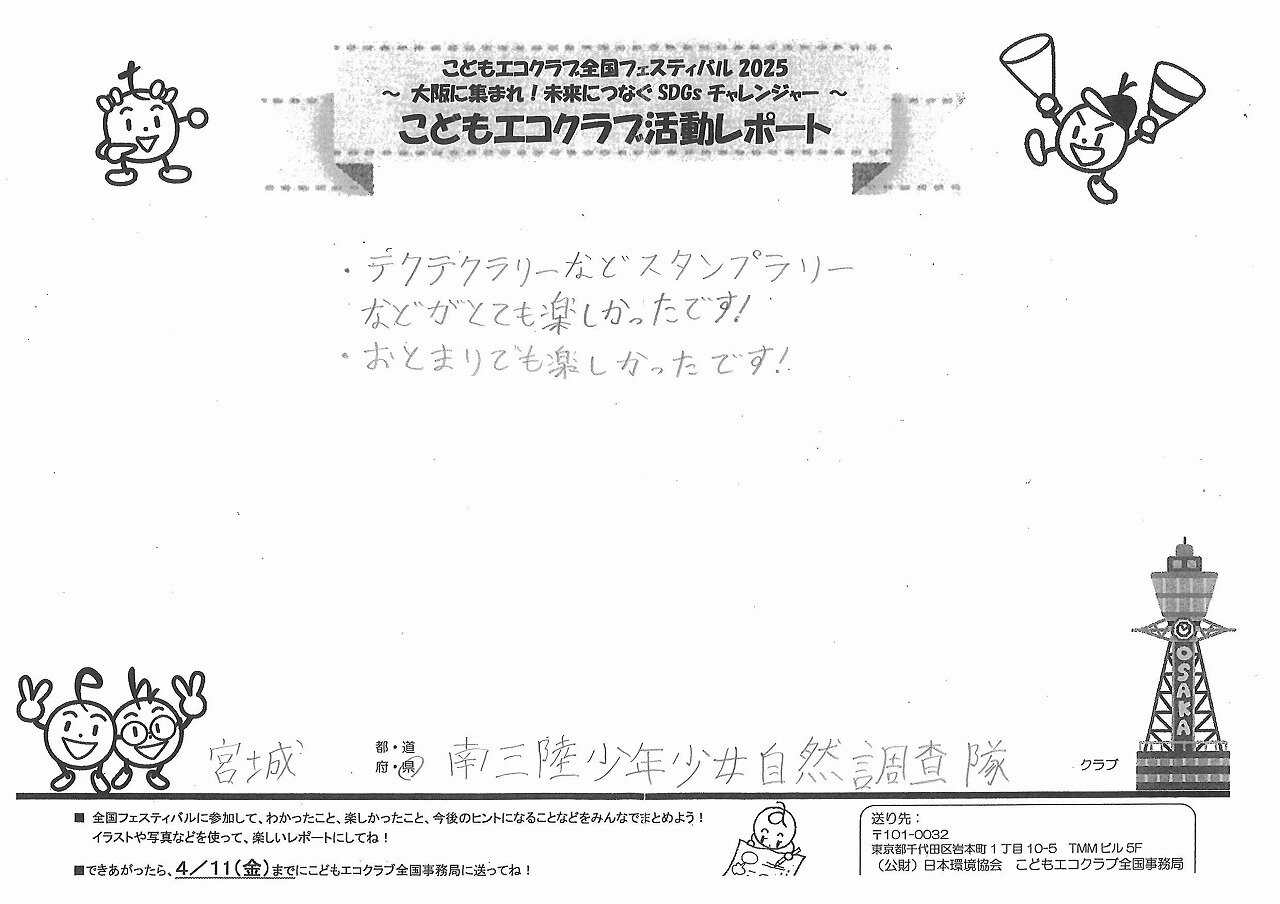 こどもエコクラブ全国フェスティバル 2025
～ 大阪に集まれ！未来につなぐ SDGs チャレンジャー ～
こどもエコクラブ活動レポート
・テクテクラリーなどスタンプラリー
などがとても楽しかったです!
・おとまりでも楽しかったです!
OSAKA
宮城 都・道 府・県 南三陸少年少女自然調査隊 クラブ
■ 全国フェスティバルに参加して、わかったこと、楽しかったこと、今後のヒントになることなどをみんなでまとめよう！
イラストや写真などを使って、楽しいレポートにしてね！
■できあがったら、4／11(金)までにこどもエコクラブ全国事務局に送ってね！
送り先：
〒101-0032
東京都千代田区岩本町 1 丁目 10-5 TMM ビル 5F
（公財）日本環境協会 こどもエコクラブ全国事務局